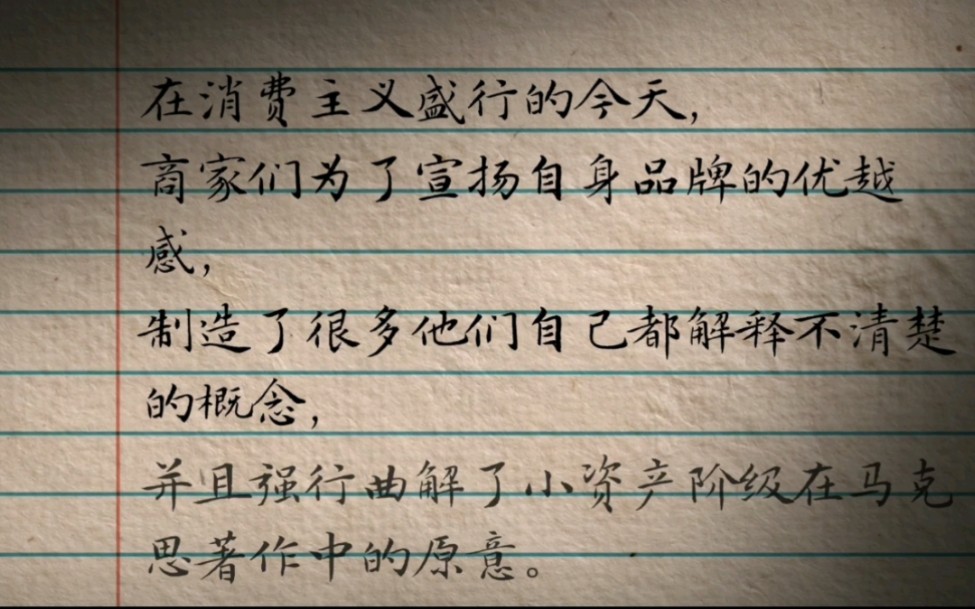 在消费主义盛行的今天，
商家们为了宣扬自身品牌的优越
感，
制造了很多他们自己都解释不清楚
的概念，
并且强行曲解了小资产阶级在马克
思著作中的原意。